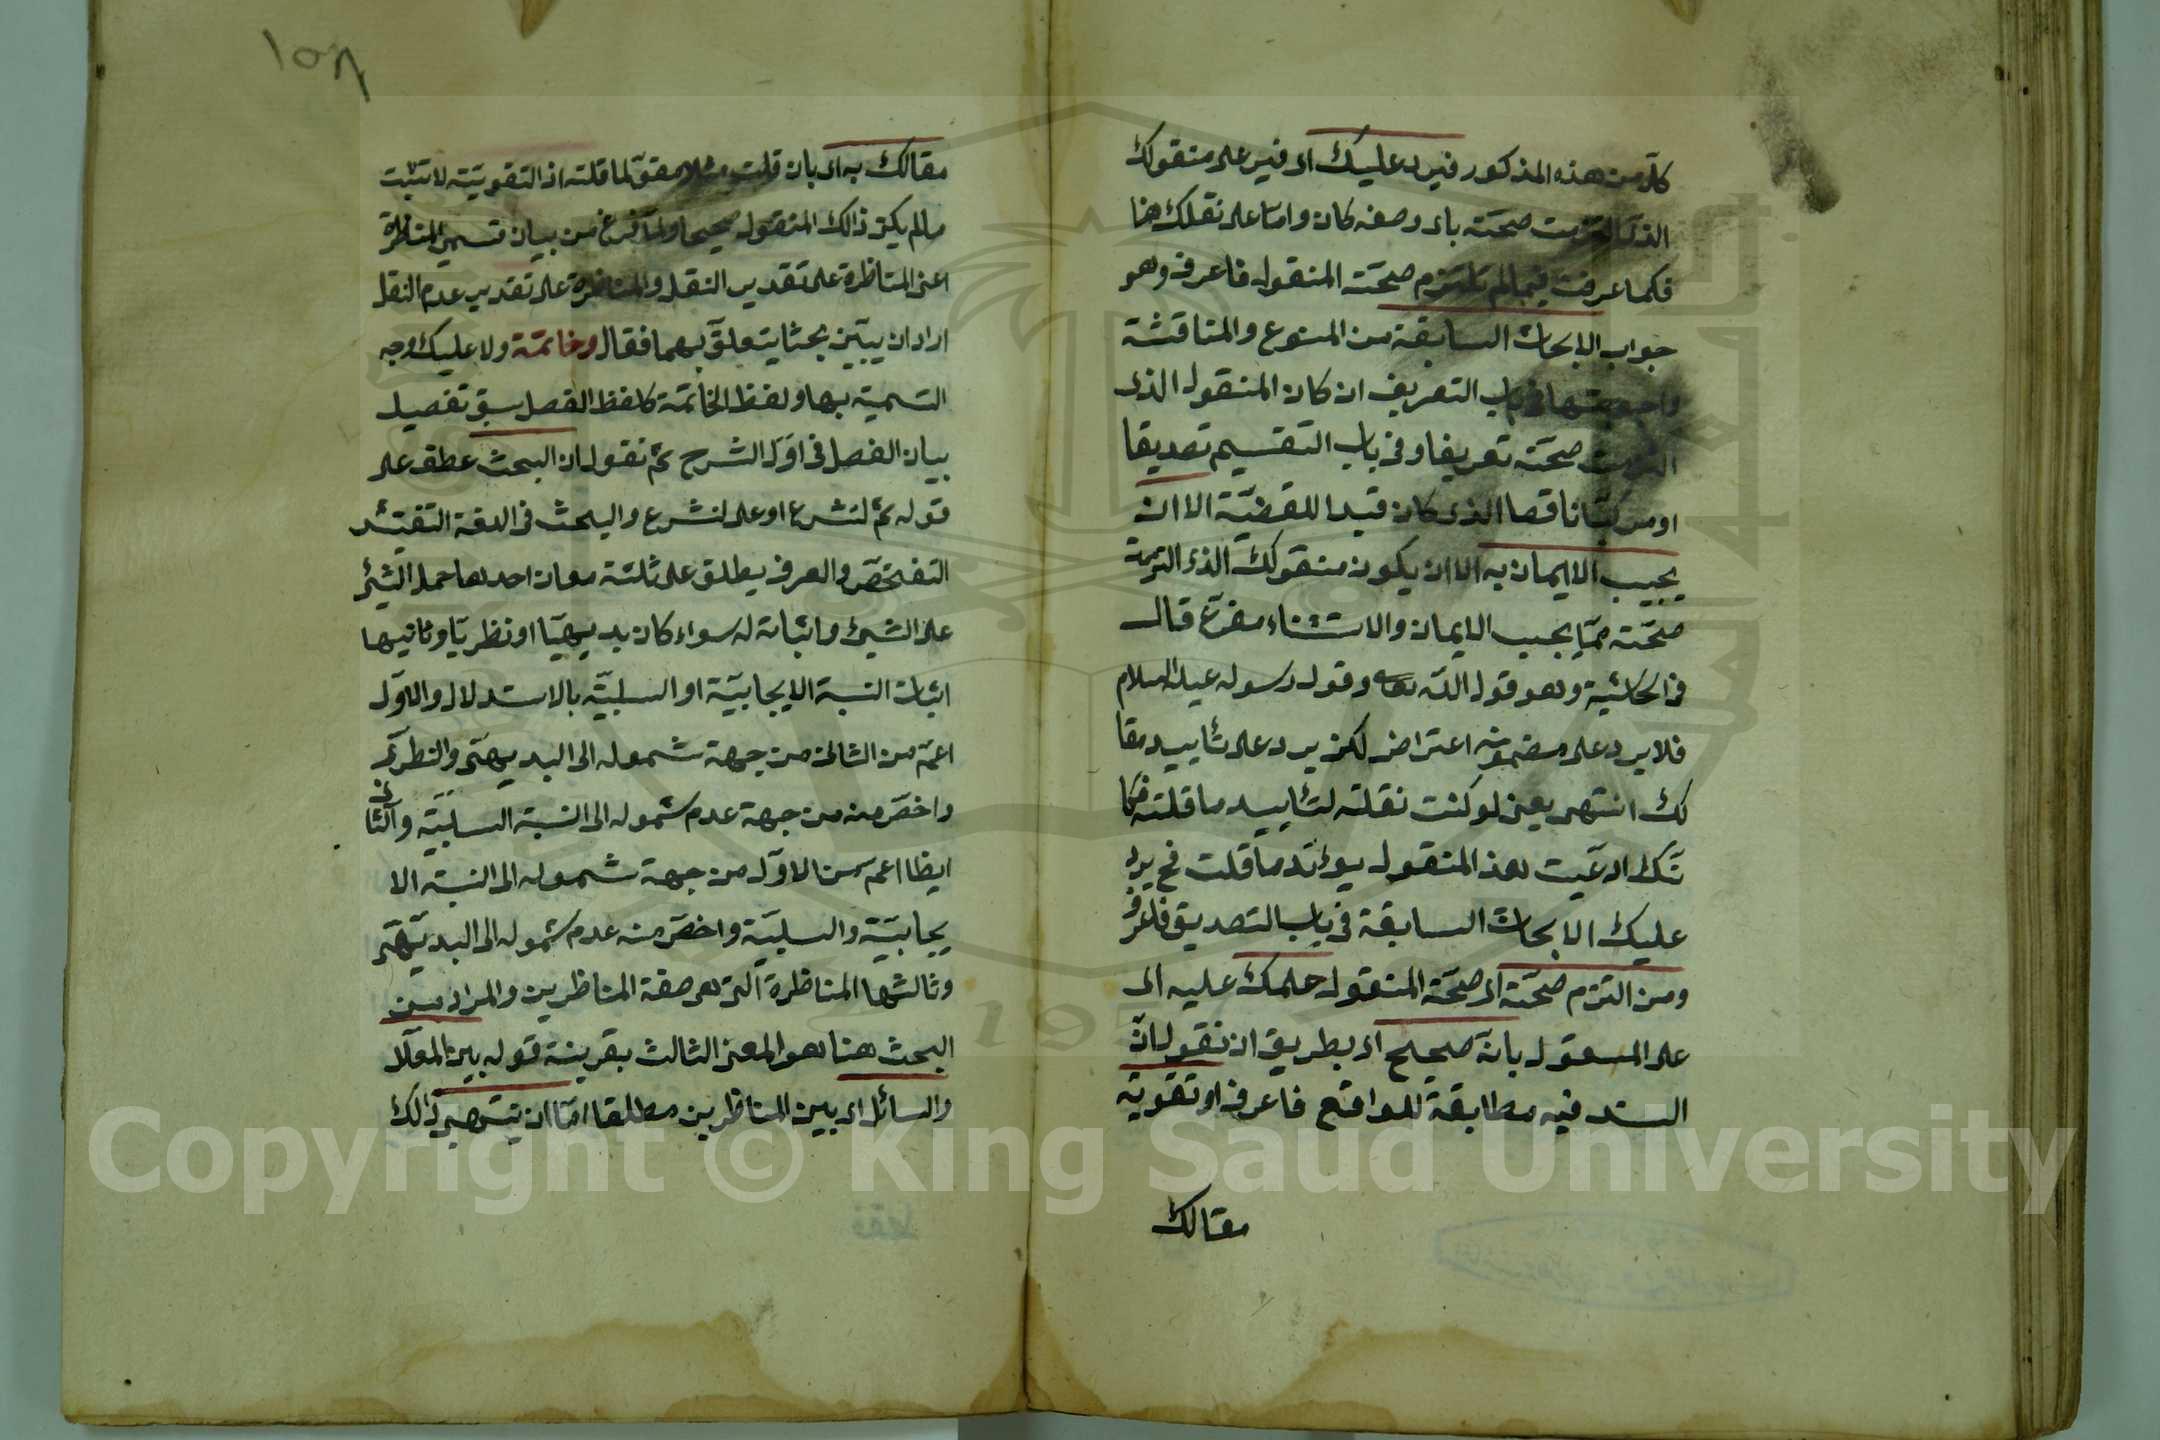 كلا من هذه المذكور فيرد عليك اى فيرد على منقولك
الذى التزمت صحته باى وصف كان واما على نقلك هنا
فكما عرفت فيما لم تلتزم صحة المنقول فاعرف وهو
جواب الابحاث السابقة من المنوع والمناقشة
واجوبتها فى باب التعريف ان كان المنقول الذى
التزمت صحته تعريفا وفى باب التقسيم تصديقا
او مركبا ناقصا الذى كان قيدا للقضية الا ان
يجب الايمان به الا ان يكون منقولك الذى التزمت
صحته مما يجب الايمان والاستثناء مفرغ قال
فى الحاشية وهو قول الله تعا وقول رسوله عليه السلام
فلا يرد على مضمونه اعتراض لكن يرد على تأييد مقا
لك انتهى يعنى لو كنت نقلته لتأييد ما قلته فكا
نك ادعيت هذ المنقول يؤيد ما قلت فح يرد
عليك الابحاث السابقة فى باب التصديق فاعرف
ومن التزم صحته اى صحة المنقول حملك عليه اى
على المنقول بانه صحيح اى بطريق ان نقول ان
السند فيه مطابقة للواقع فاعرف او تقوية
مقالك
١٥٨
مقالك به اى بان قلت مثلا مقو لما قلته اذ التقوية لا تثبت
مالم يكن ذالك المنقول صحيحا ولما فرغ من بيان قسمى المناظرة
اعنى المناظرة على تقدير النقل والمناظرة على تقدير عدم النقل
اراد ان يبين بحثا يتعلق بهما فقال وخاتمة ولا عليك وجه
التسمية بها ولفظ الخاتمة كلفظ الفصل سبق تفصيل
بيان الفصل فى اول الشرح ثم نقول ان البحث عطف على
قوله ثم لنشرع او على لنشرع والبحث فى اللغة التفتش
التفحص والعرف يطلق على ثلثة معان احدها حمل الشئ
على الشئ واثباته له سواء كان بديهيا او نظريا وثانيها
اثبات النسبة الايجابية او السلبية بالاستدلال والاول
اعم من الثانى من جهة شموله الى البديهى والنظرى
واخص منه من جهة عدم شموله الى النسبة السلبية والثانى
ايضا اعم من الاول من جهة شموله الى النسبة الا
يجابية والسلبية واخص منه عدم شموله الى البديهى
وثالثها المناظرة التى هى صفة المناظرين والمراد من
البحث هنا هو المعنى الثالث بقرينة قوله بين المعلل
والسائل اى بين المناظرين مطلقا اما ان ينتهى ذالك
Copyright © King Saud University